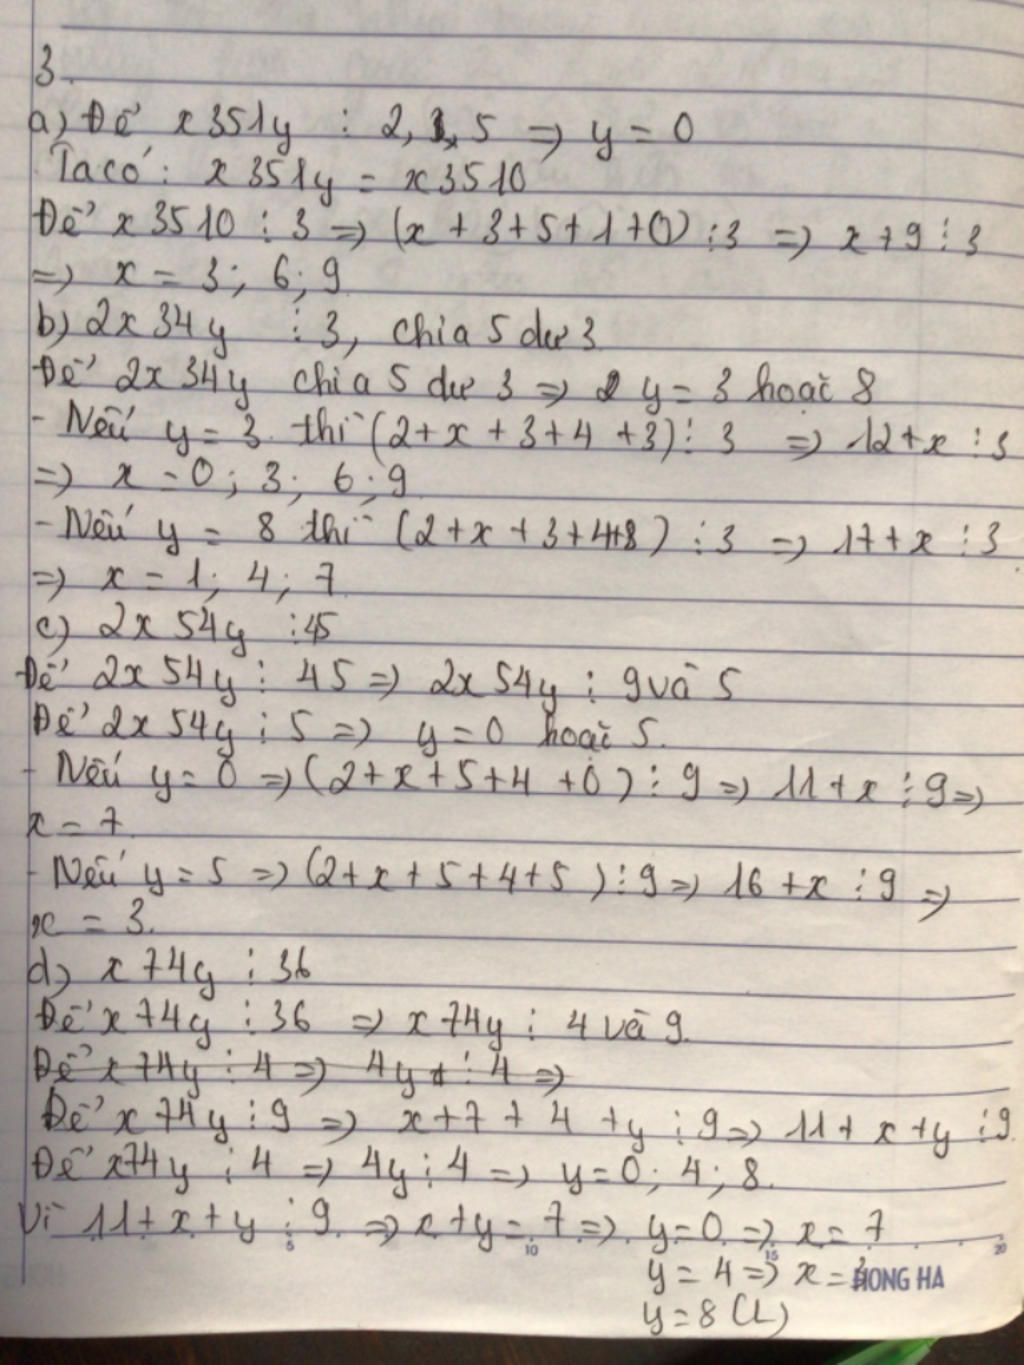 3.
a) Để x351y ⋮ 2, 3, 5 => y = 0
Ta có: x351y = x3510
Để x3510 ⋮ 3 => (x + 3+5+1+0) ⋮ 3 => x+9 ⋮ 3
=> x = 3; 6; 9
b) 2x34y ⋮ 3, chia 5 dư 3
Để 2x34y chia 5 dư 3 => y = 3 hoặc 8
- Nếu y = 3 thì (2+x+3+4+3) ⋮ 3 => 12+x ⋮ 3
=> x = 0; 3; 6; 9
- Nếu y = 8 thì (2+x+3+4+8) ⋮ 3 => 17+x ⋮ 3
=> x = 1; 4; 7
c) 2x54y ⋮ 45
Để 2x54y ⋮ 45 => 2x54y ⋮ 9 và 5
Để 2x54y ⋮ 5 => y = 0 hoặc 5.
- Nếu y = 0 => (2+x+5+4+0) ⋮ 9 => 11+x ⋮ 9 =>
x = 7
- Nếu y = 5 => (2+x+5+4+5) ⋮ 9 => 16+x ⋮ 9 =>
x = 3.
d) x74y ⋮ 36
Để x74y ⋮ 36 => x74y ⋮ 4 và 9
Để x74y ⋮ 4 => 4y ⋮ 4 =>
Để x74y ⋮ 9 => x+7+4+y ⋮ 9 => 11+x+y ⋮ 9
Để x74y ⋮ 4 => 4y ⋮ 4 => y = 0; 4; 8.
Vì 11+x+y ⋮ 9 => x+y = 7 => y = 0 => x = 7
5 10 15 20
y = 4 => x = 3
HONG HA
y = 8 (L)